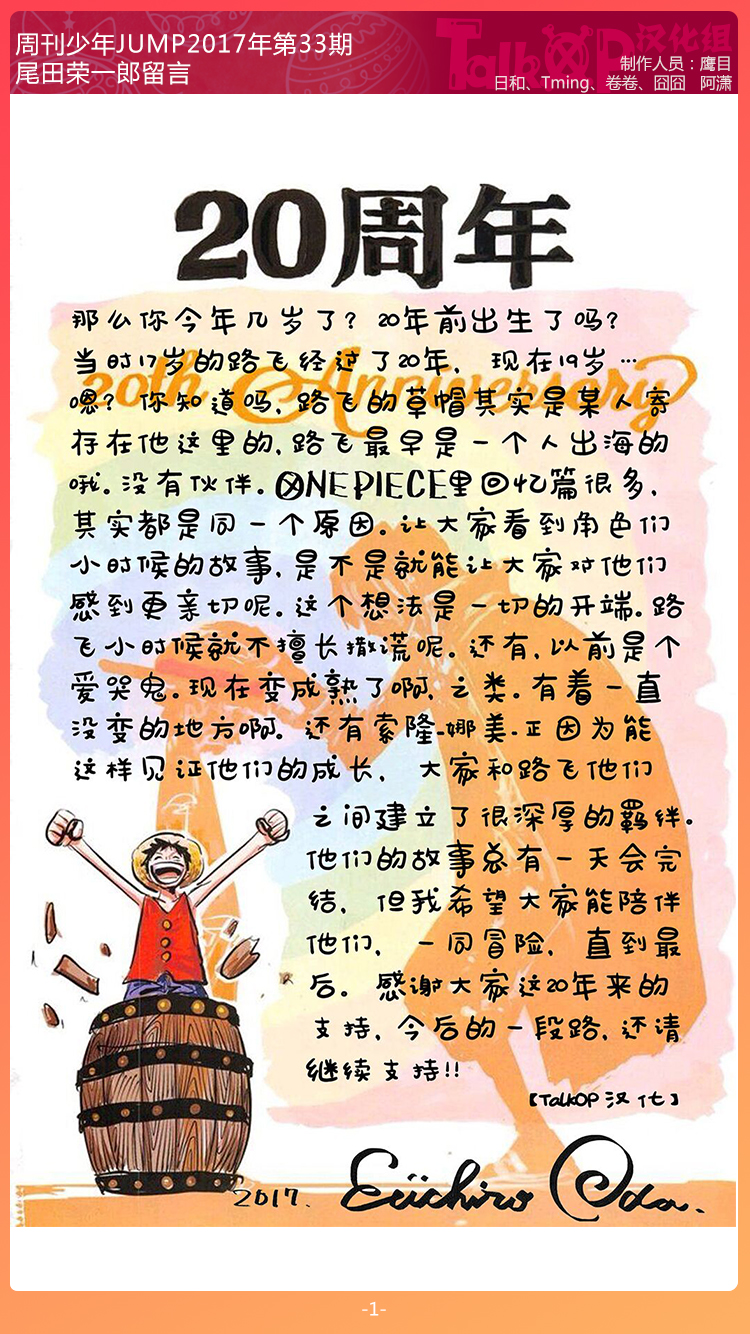 周刊少年JUMP2017年第33期
尾田荣一郎留言
TalkOP汉化组
制作人员：鹰目
日和、Tming、卷卷、囧囧　阿潇
20周年
20th Anniversary
那么你今年几岁了？20年前出生了吗？
当时17岁的路飞经过了20年，现在19岁…
嗯？你知道吗，路飞的草帽其实是某人寄
存在他这里的，路飞最早是一个人出海的
哦。没有伙伴。ONE PIECE里回忆篇很多，
其实都是同一个原因。让大家看到角色们
小时候的故事，是不是就能让大家对他们
感到更亲切呢。这个想法是一切的开端。路
飞小时候就不擅长撒谎呢。还有，以前是个
爱哭鬼。现在变成熟了啊，之类。有着一直
没变的地方啊。还有索隆、娜美、正因为能
这样见证他们的成长，大家和路飞他们
之间建立了很深厚的羁绊。
他们的故事总有一天会完
结，但我希望大家能陪伴
他们，一同冒险，直到最
后。感谢大家这20年来的
支持，今后的一段路，还请
继续支持!!
【TalkOP汉化】
2017. Eiichiro Oda.
-1-